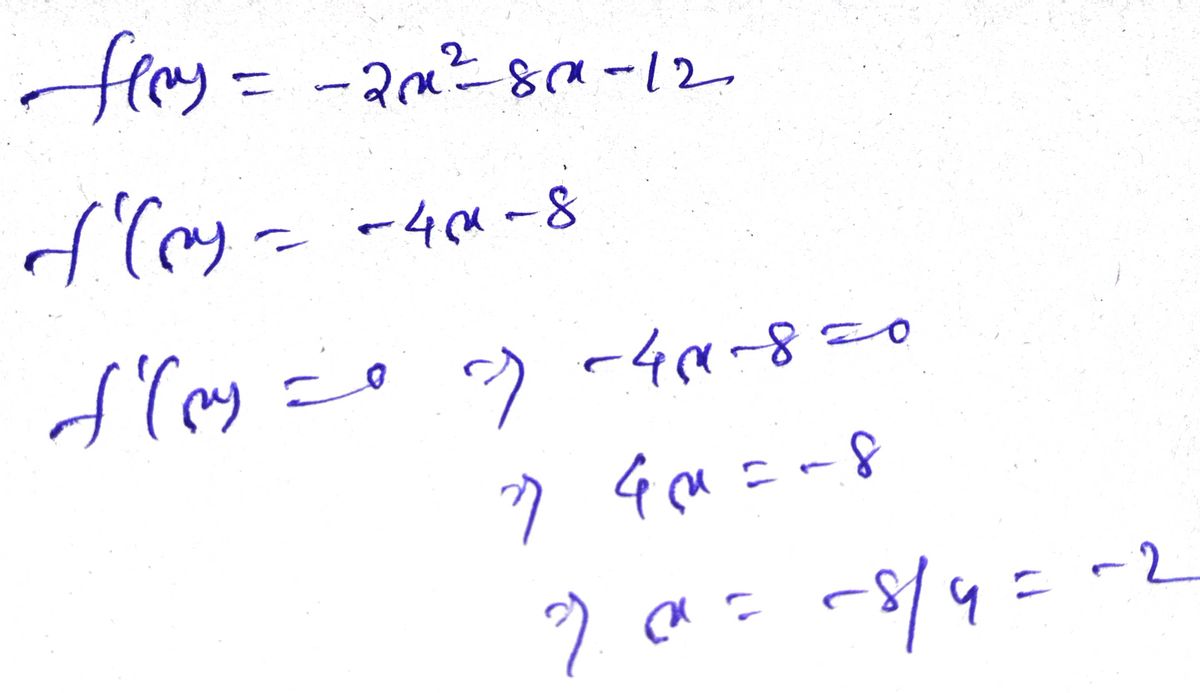 f(x) = -2x² - 8x - 12
f'(x) = -4x - 8
f'(x) = 0 ⇒ -4x - 8 = 0
⇒ 4x = -8
⇒ x = -8/4 = -2